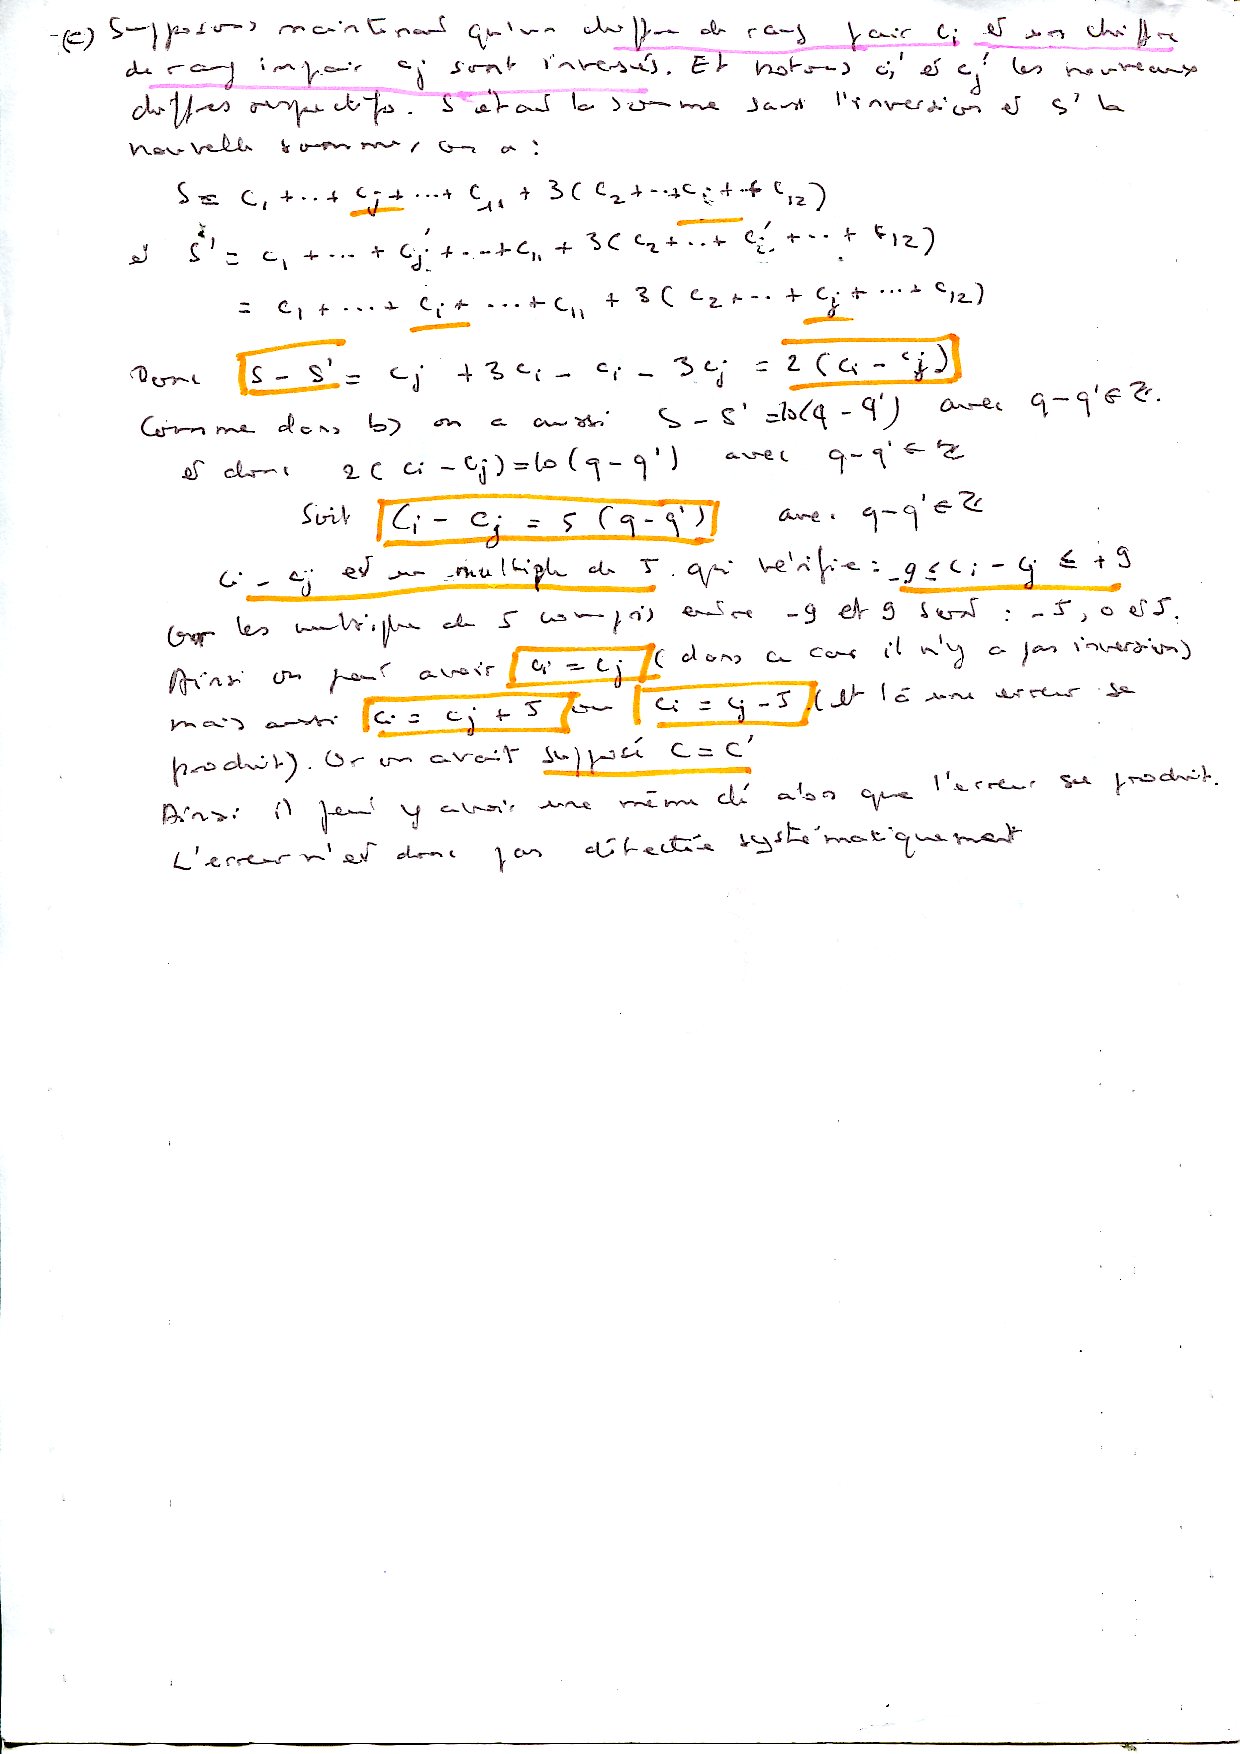 (c) Supposons maintenant qu'un chiffre de rang pair ci et un chiffre
de rang impair cj sont inversés. Et notons ci' et cj' les nouveaux
chiffres respectifs. S étant la somme sans l'inversion et S' la
nouvelle somme, on a :
S = c1 + ... + cj + ... + c11 + 3(c2 + ... + ci + + c12)
et S' = c1 + ... + cj' + ... + c11 + 3(c2 + ... + ci' + ... + c12)
= c1 + ... + ci + ... + c11 + 3(c2 + ... + cj + ... + c12)
Donc S - S' = cj + 3ci - ci - 3cj = 2(ci - cj)
Comme dans b) on a aussi S - S' = 10(q - q') avec q - q' ∈ Z.
et donc 2(ci - cj) = 10(q - q') avec q - q' ∈ Z
Soit ci - cj = 5(q - q') avec q - q' ∈ Z
ci - cj est un multiple de 5 qui vérifie : -9 ≤ ci - cj ≤ +9
Or les multiples de 5 compris entre -9 et 9 sont : -5, 0 et 5.
Ainsi on peut avoir ci = cj (dans ce cas il n'y a pas inversion)
mais aussi ci = cj + 5 ou ci = cj - 5 (et là une erreur se
produit). Or on avait supposé C = C'
Ainsi il peut y avoir une même clé alors que l'erreur se produit.
L'erreur n'est donc pas détectée systématiquement